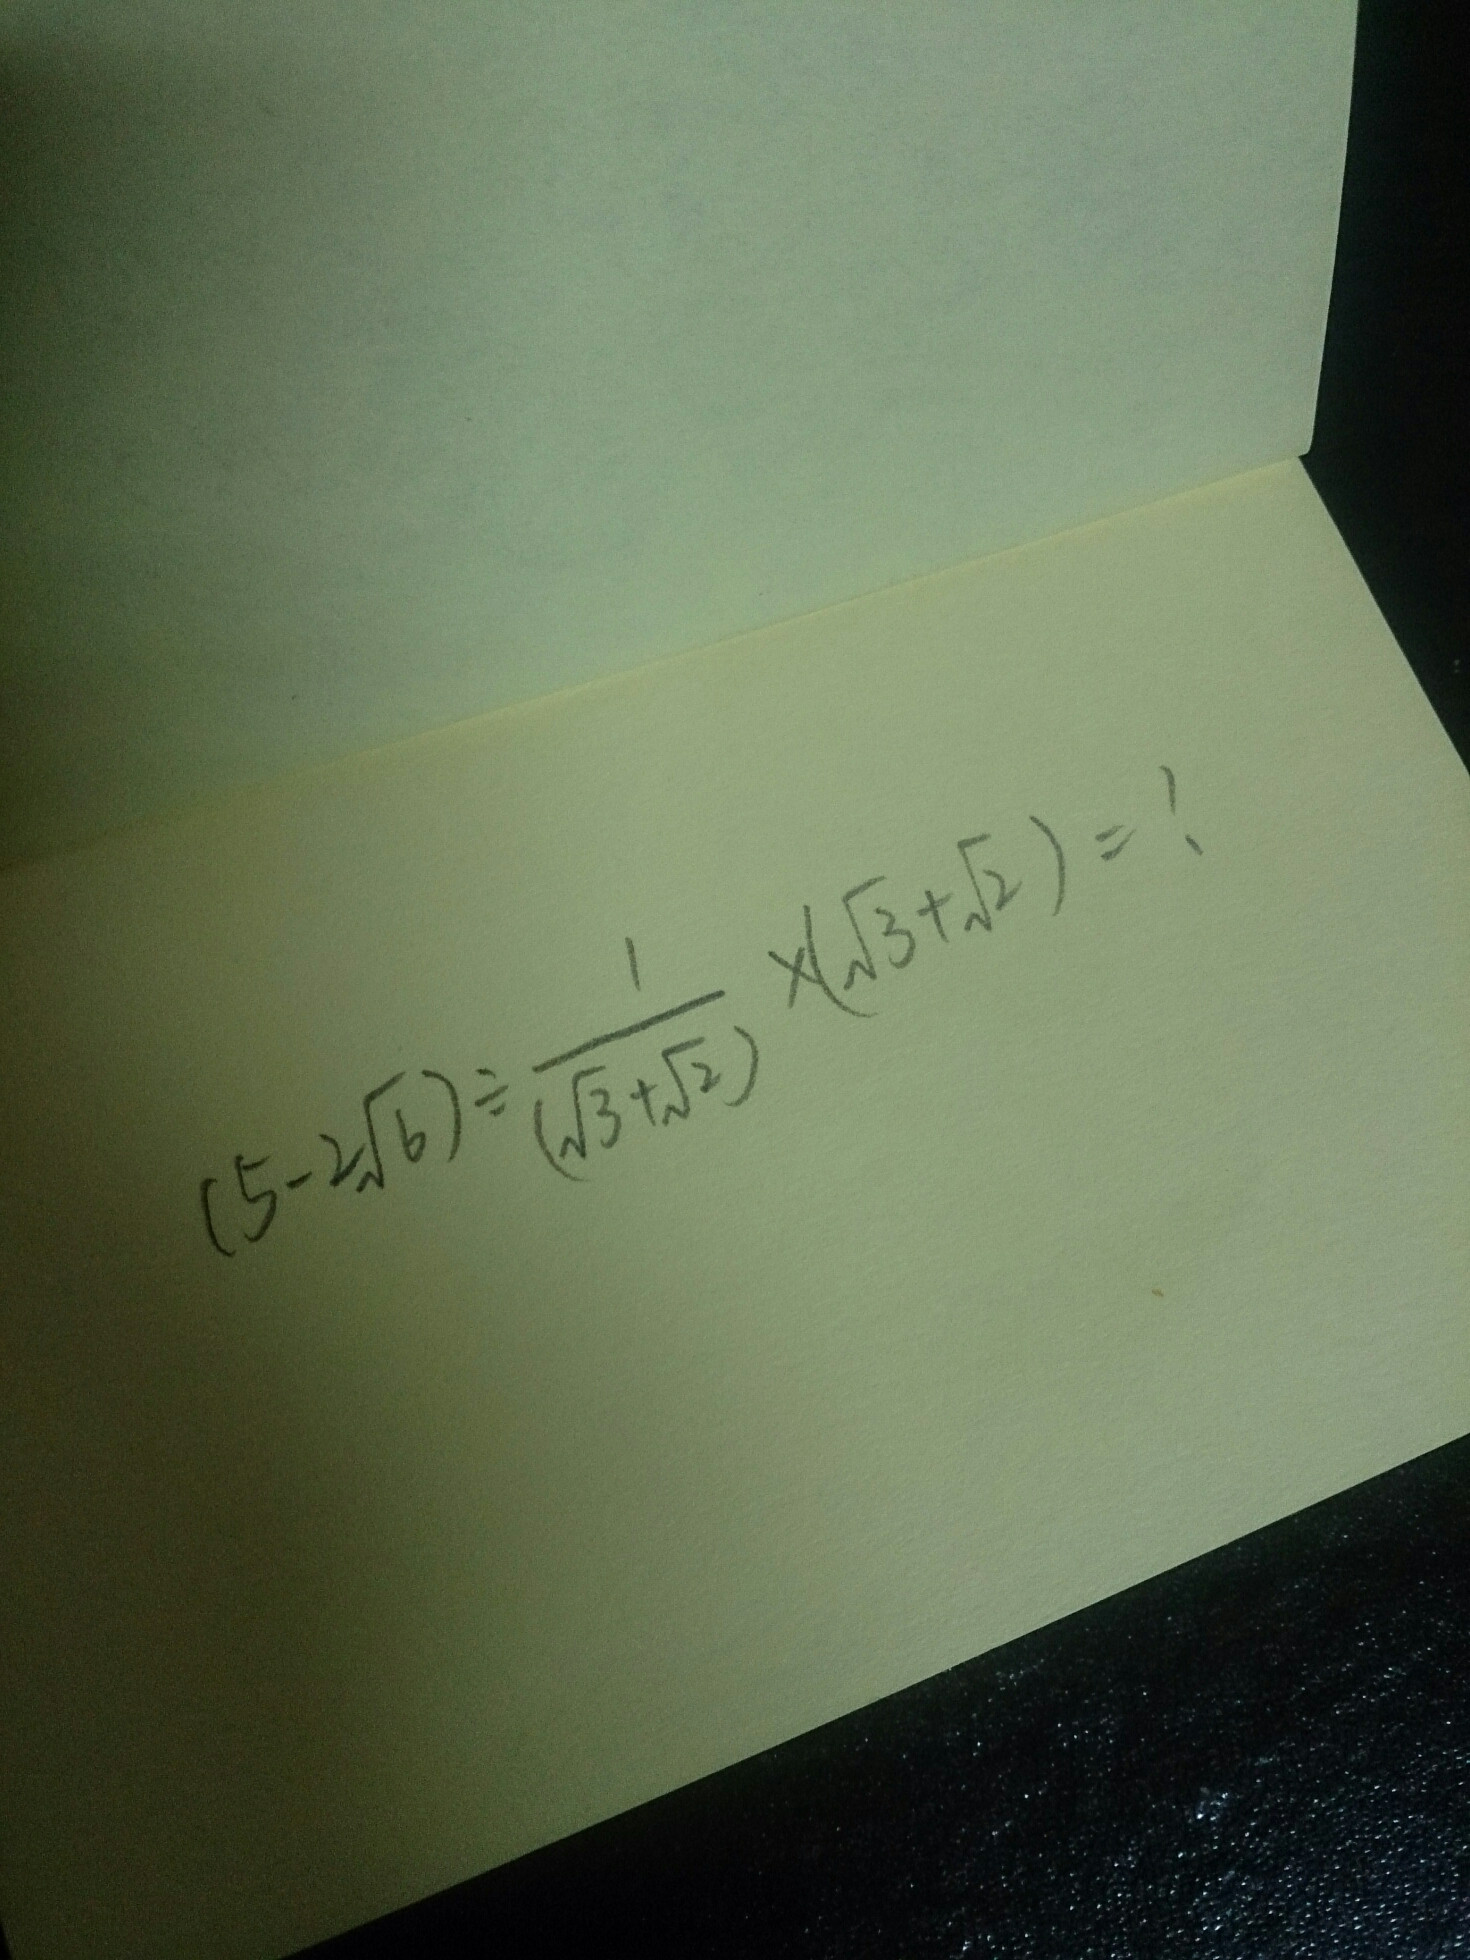 (5-2√6)÷1/(√3+√2)×(√3+√2)=?